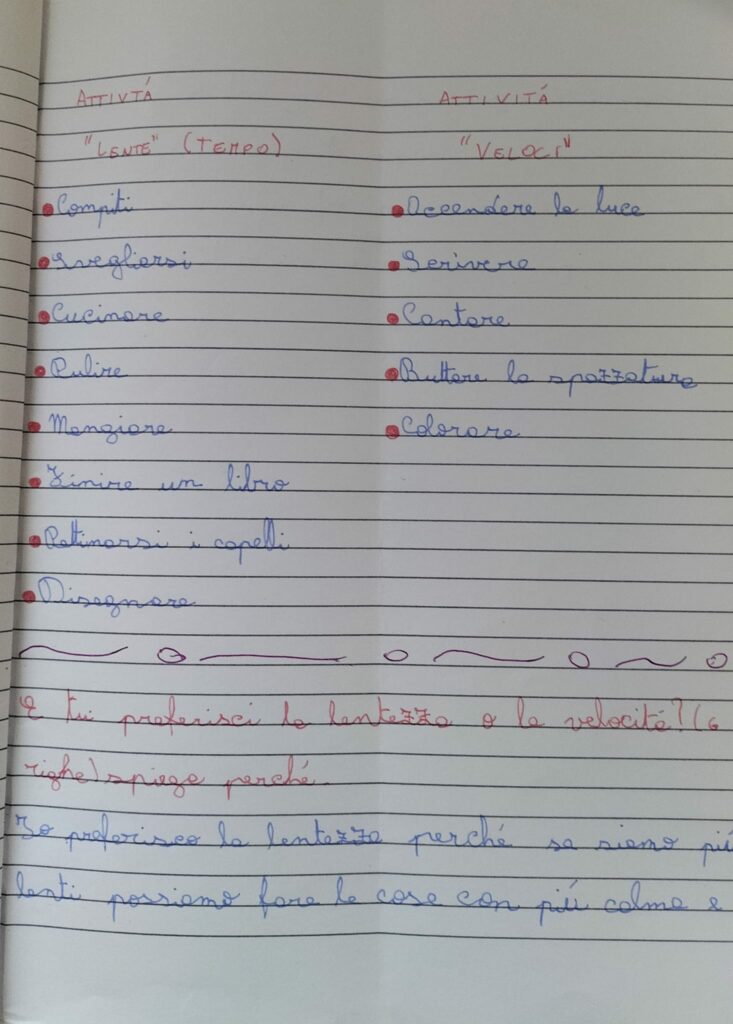 ATTIVTÁ
"LENTE" (TEMPO)
Compiti
Svegliarsi
Cucinare
Pulire
Mangiare
Finire un libro
Pettinarsi i capelli
Disegnare
ATTIVITÁ
"VELOCI"
Accendere la luce
Scrivere
Cantare
Buttare la spazzatura
Colorare
E tu preferisci la lentezza o la velocitá? (6
righe) spiega perché.
Io preferisco la lentezza perché se siamo piú
lenti possiamo fare le cose con piú calma e